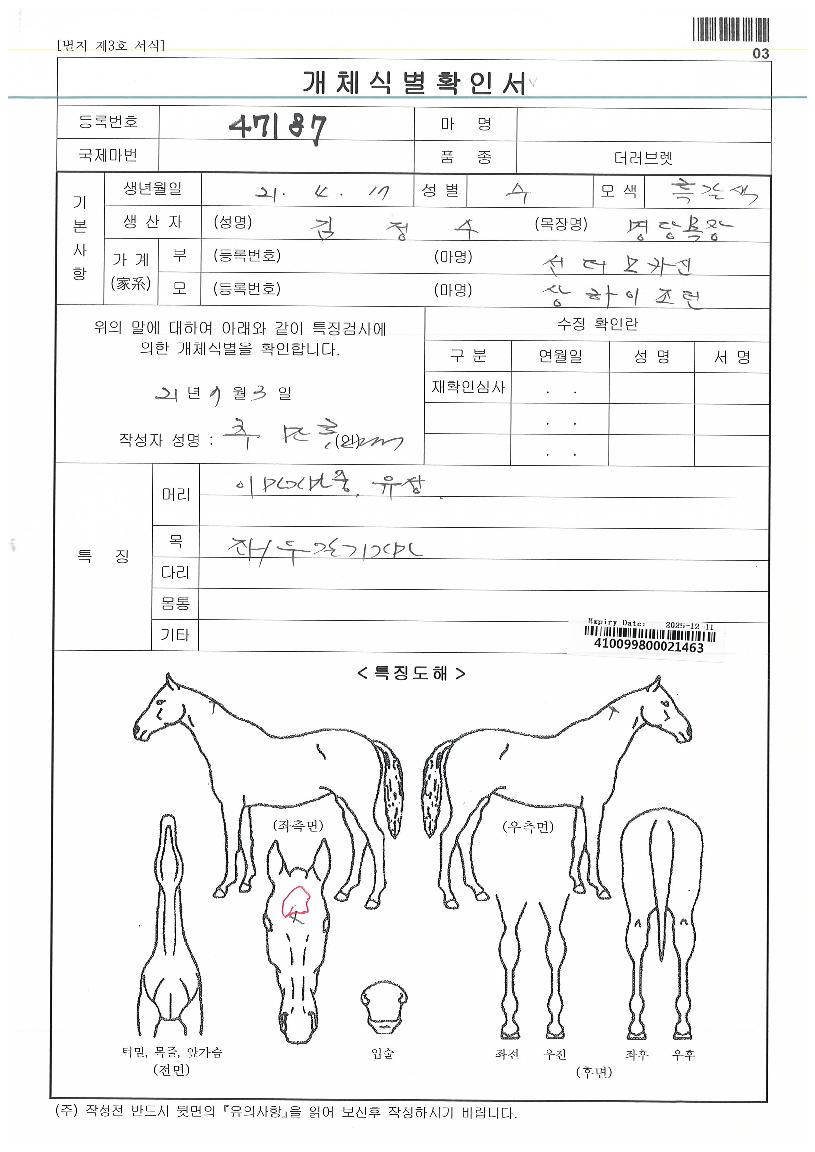 [별지 제3호 서식]
03
개체식별확인서
등록번호 47187 마 명
국제마번 품 종 더러브렛
기본사항
생년월일 21. 4. 17 성별 수 모색 흑갈색
생산자 (성명) 김 정 수 (목장명) 명당목장
가계 (家系) 부 (등록번호) (마명) 선더모카신
모 (등록번호) (마명) 상하이조런
위의 말에 대하여 아래와 같이 특징검사에
의한 개체식별을 확인합니다.
21 년 9 월 3 일
작성자 성명 : (인)
수정 확인란
구분 연월일 성 명 서 명
재확인심사 . .
. .
. .
특 징
머리 유성
목
다리
몸통
기타
Expiry Date: 2025-12-11
410099800021463
< 특징도해 >
(좌측면) (우측면)
턱밑, 목줄, 앞가슴
(전면)
입술
좌전 우전 좌후 우후
(후면)
(주) 작성전 반드시 뒷면의 『유의사항』을 읽어 보신후 작성하시기 바랍니다.